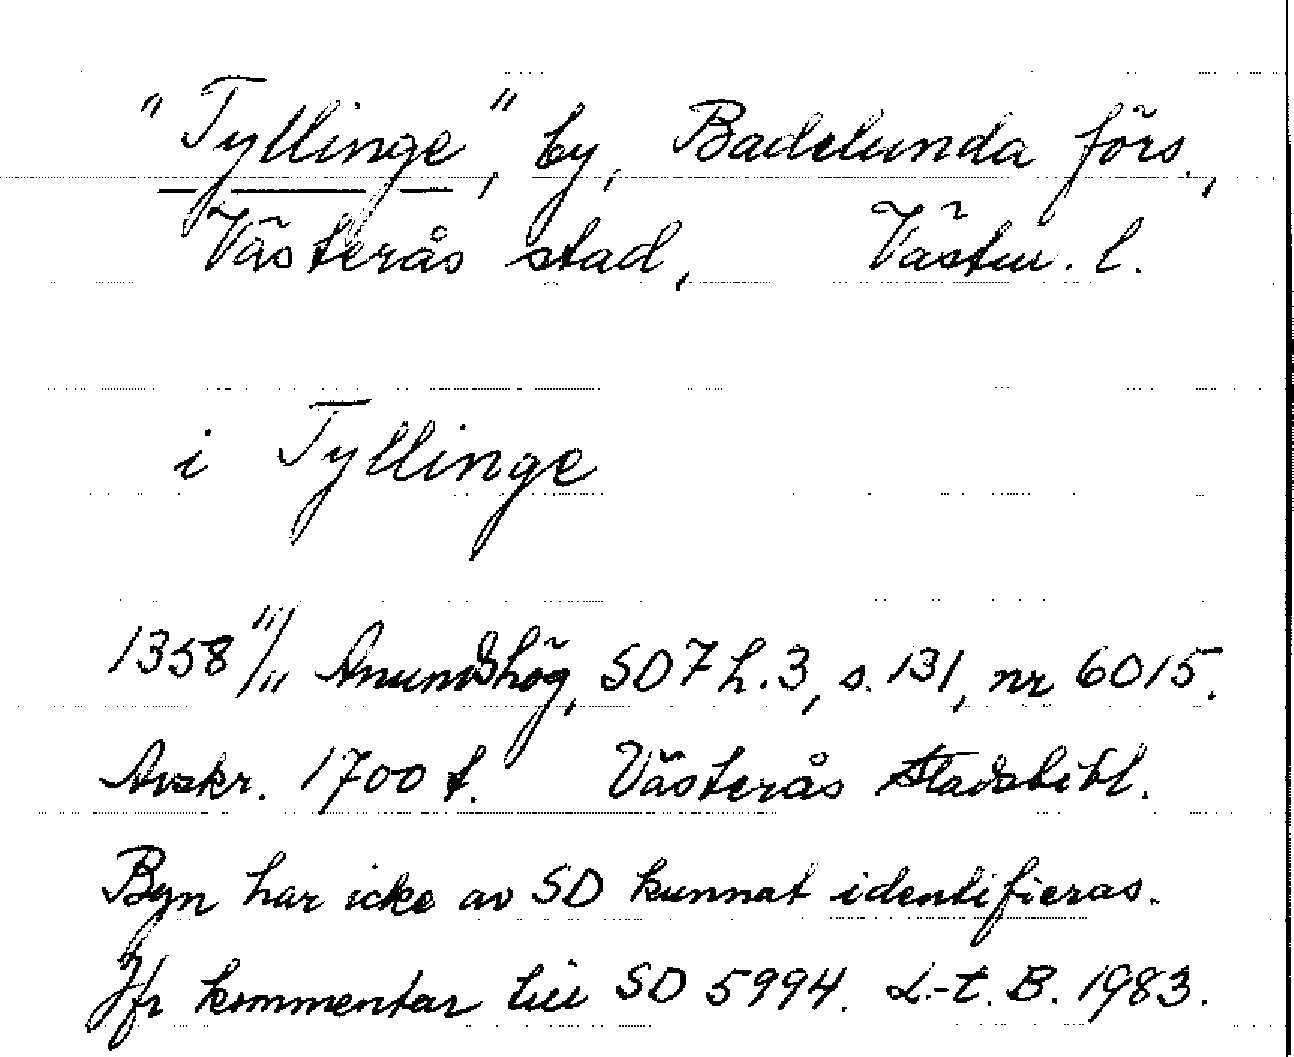 "Tyllinge", by, Badelunda förs.,
Västerås stad, Västm. l.
i Tyllinge
1358 11/11 Anundshög, SD 7 h. 3, s. 131, nr 6015.
Avskr. 1700 t. Västerås Stadsbibl.
Byn har icke av SD kunnat identifieras.
Jfr kommentar till SD 5994. L.-t. B. 1983.